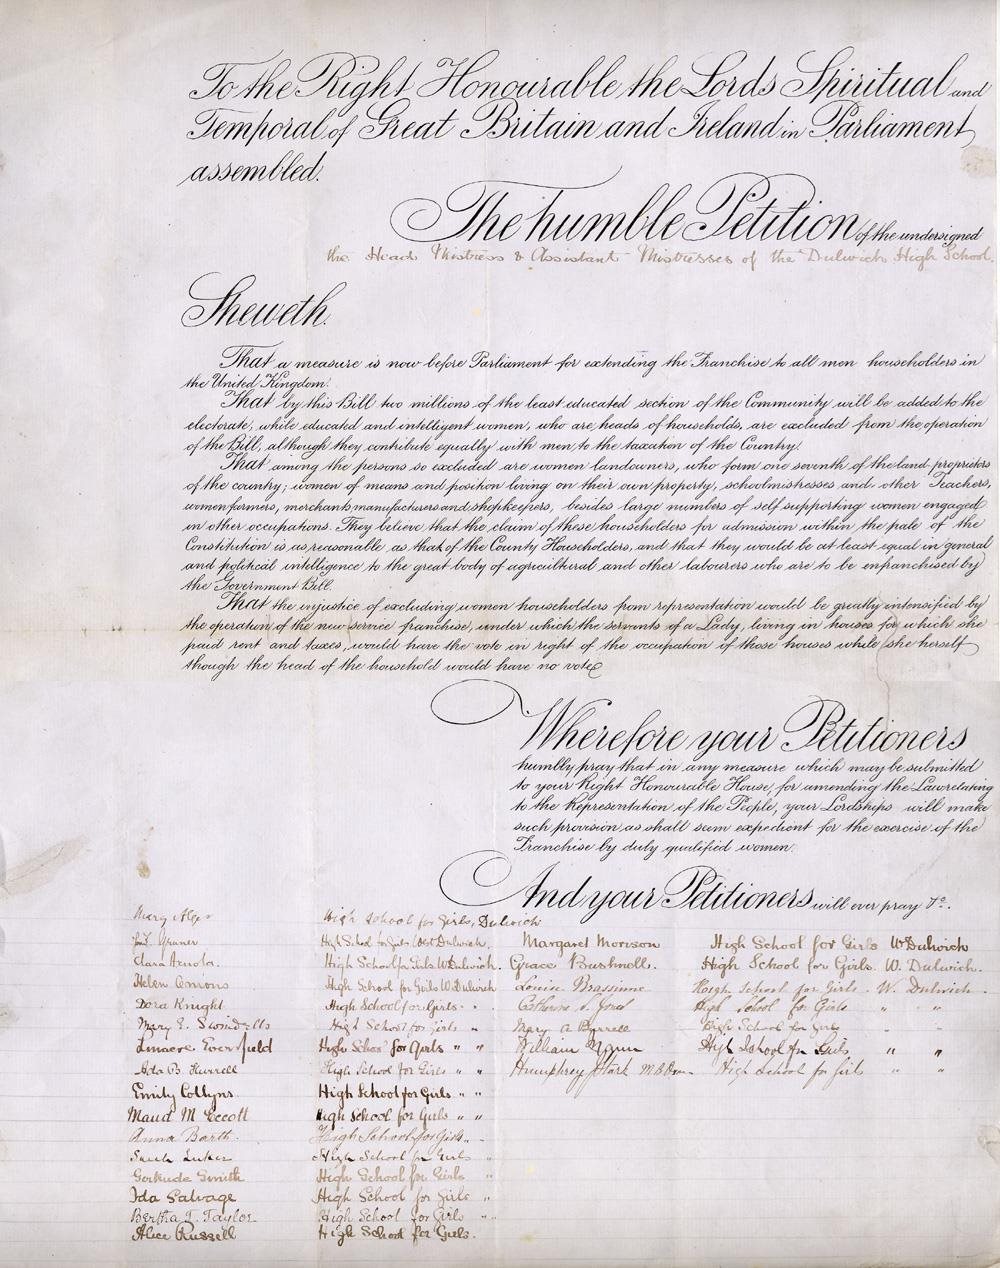 To the Right Honourable the Lords Spiritual and
Temporal of Great Britain and Ireland in Parliament
assembled.
The humble Petition of the undersigned
the Head Mistress & Assistant Mistresses of the Dulwich High School.
Sheweth.
That a measure is now before Parliament for extending the Franchise to all men householders in
the United Kingdom.
That by this Bill two millions of the least educated section of the Community will be added to the
electorate, while educated and intelligent women, who are heads of households, are excluded from the operation
of the Bill, although they contribute equally with men to the taxation of the Country.
That among the persons so excluded are women landowners, who form one seventh of the land proprietors
of the country; women of means and position living on their own property, schoolmistresses and other Teachers,
women farmers, merchants, manufacturers and shopkeepers, besides large numbers of self supporting women engaged
in other occupations. They believe that the claim of these householders for admission within the pale of the
Constitution is as reasonable as that of the County Householders, and that they would be at least equal in general
and political intelligence to the great body of agricultural and other labourers who are to be enfranchised by
the Government Bill.
That the injustice of excluding women householders from representation would be greatly intensified by
the operation of the new service franchise, under which the servants of a Lady, living in houses for which she
paid rent and taxes, would have the vote in right of the occupation of those houses while she herself
though the head of the household would have no vote
Wherefore your Petitioners
humbly pray that in any measure which may be submitted
to your Right Honourable House, for amending the Law relating
to the Representation of the People, your Lordships will make
such provision as shall seem expedient for the exercise of the
Franchise by duly qualified women.
And your Petitioners will ever pray &c.
Mary Alger High School for Girls, Dulwich
Gruner High School for Girls West Dulwich. Margaret Morison High School for Girls W Dulwich
Clara Arnold. High School for Girls W Dulwich. Grace Bushnell. High School for Girls. W. Dulwich.
Helen High School for Girls W Dulwich Louise High School for Girls. W. Dulwich
Dora Knight High School for Girls " " Catherine High School for Girls " "
Mary E. Swindells High School for Girls " Mary A High School for Girls "
Eversfield High School for Girls " " William High School for Girls " "
Ada B. Hurrell High School for Girls " " Humphrey High School for Girls " "
Emily Collyns. High School for Girls. " "
Maud M Eccott High School for Girls " "
Anna Barth. High School for Girls " "
High School for Girls "
Gertrude Smith High School for Girls "
Ida Salvage High School for Girls "
Bertha T. Taylor High School for Girls "
Alice Russell High School for Girls.